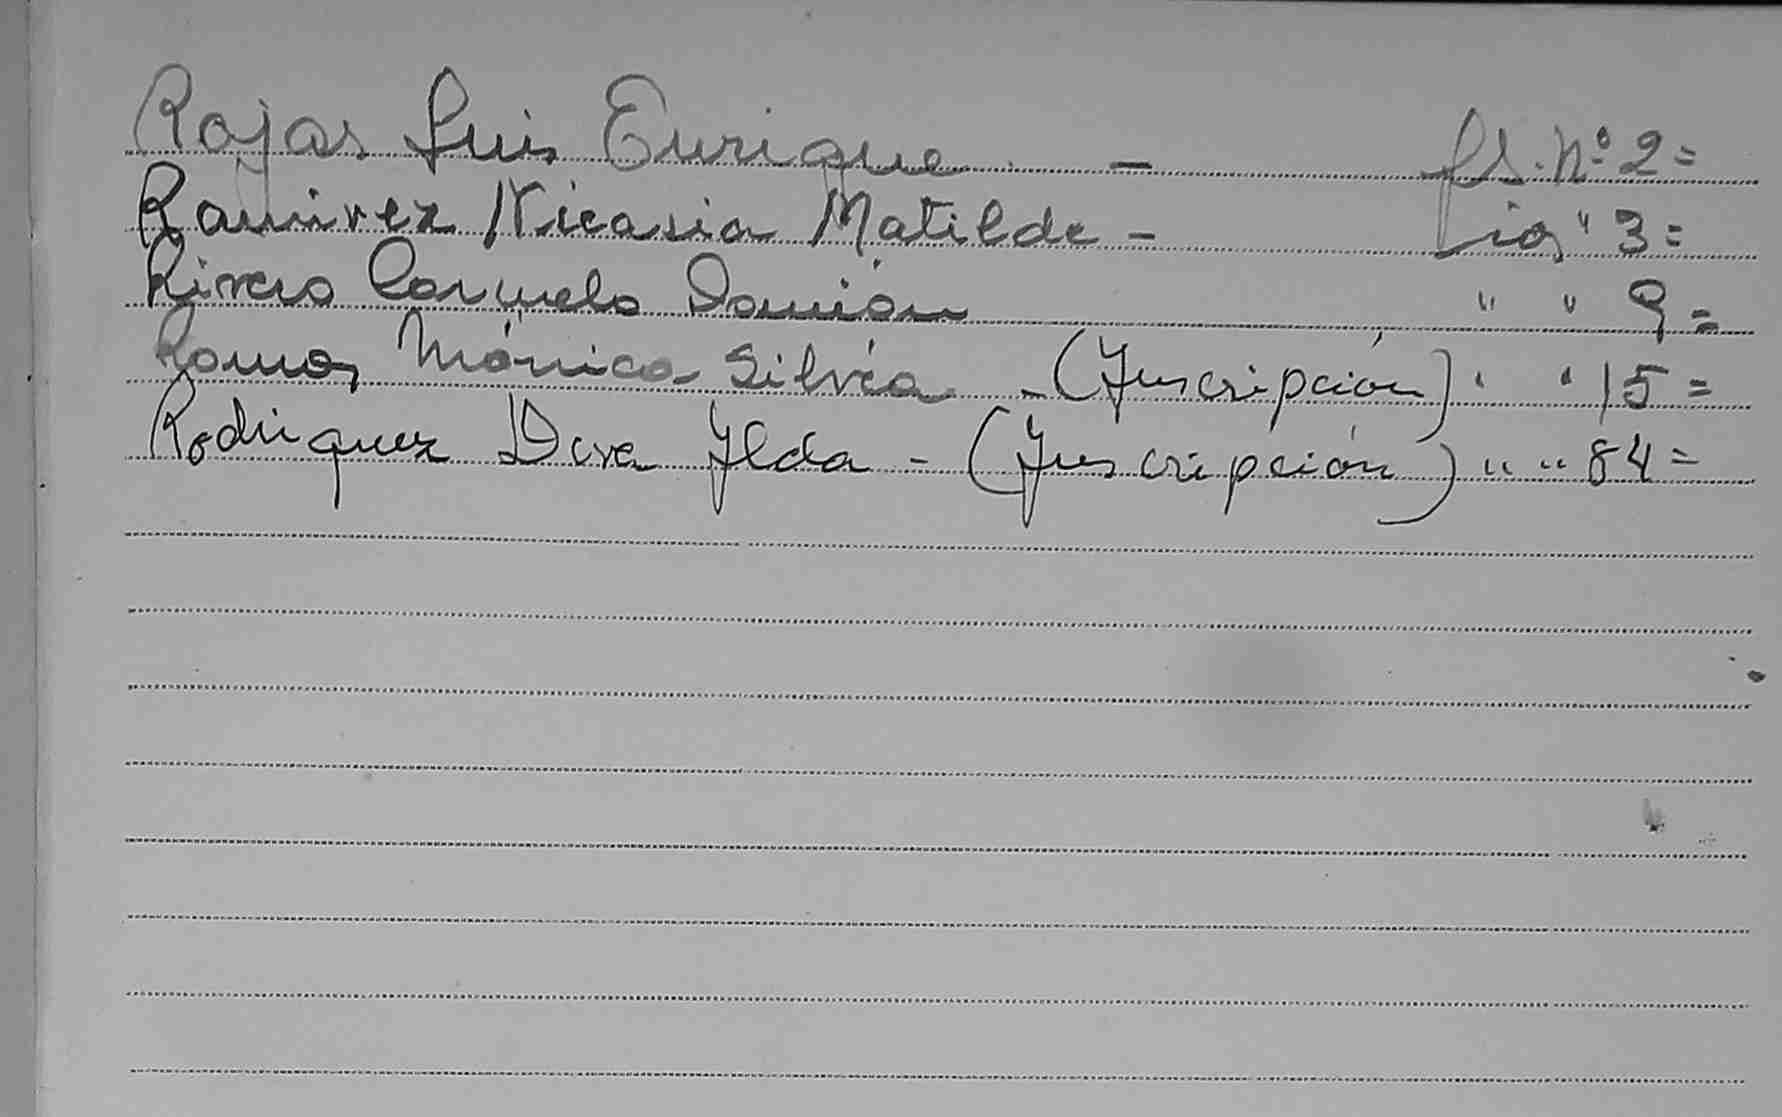 Rojas Luis Enrique. - fs. Nº 2=
Ramirez Nicasia Matilde - " 3=
Rivero Carmelo Damián " " 9=
Ramos Mónica Silvia - (Inscripción) " " 15=
Rodriguez Diva Ilda - (Inscripción) " " 84=